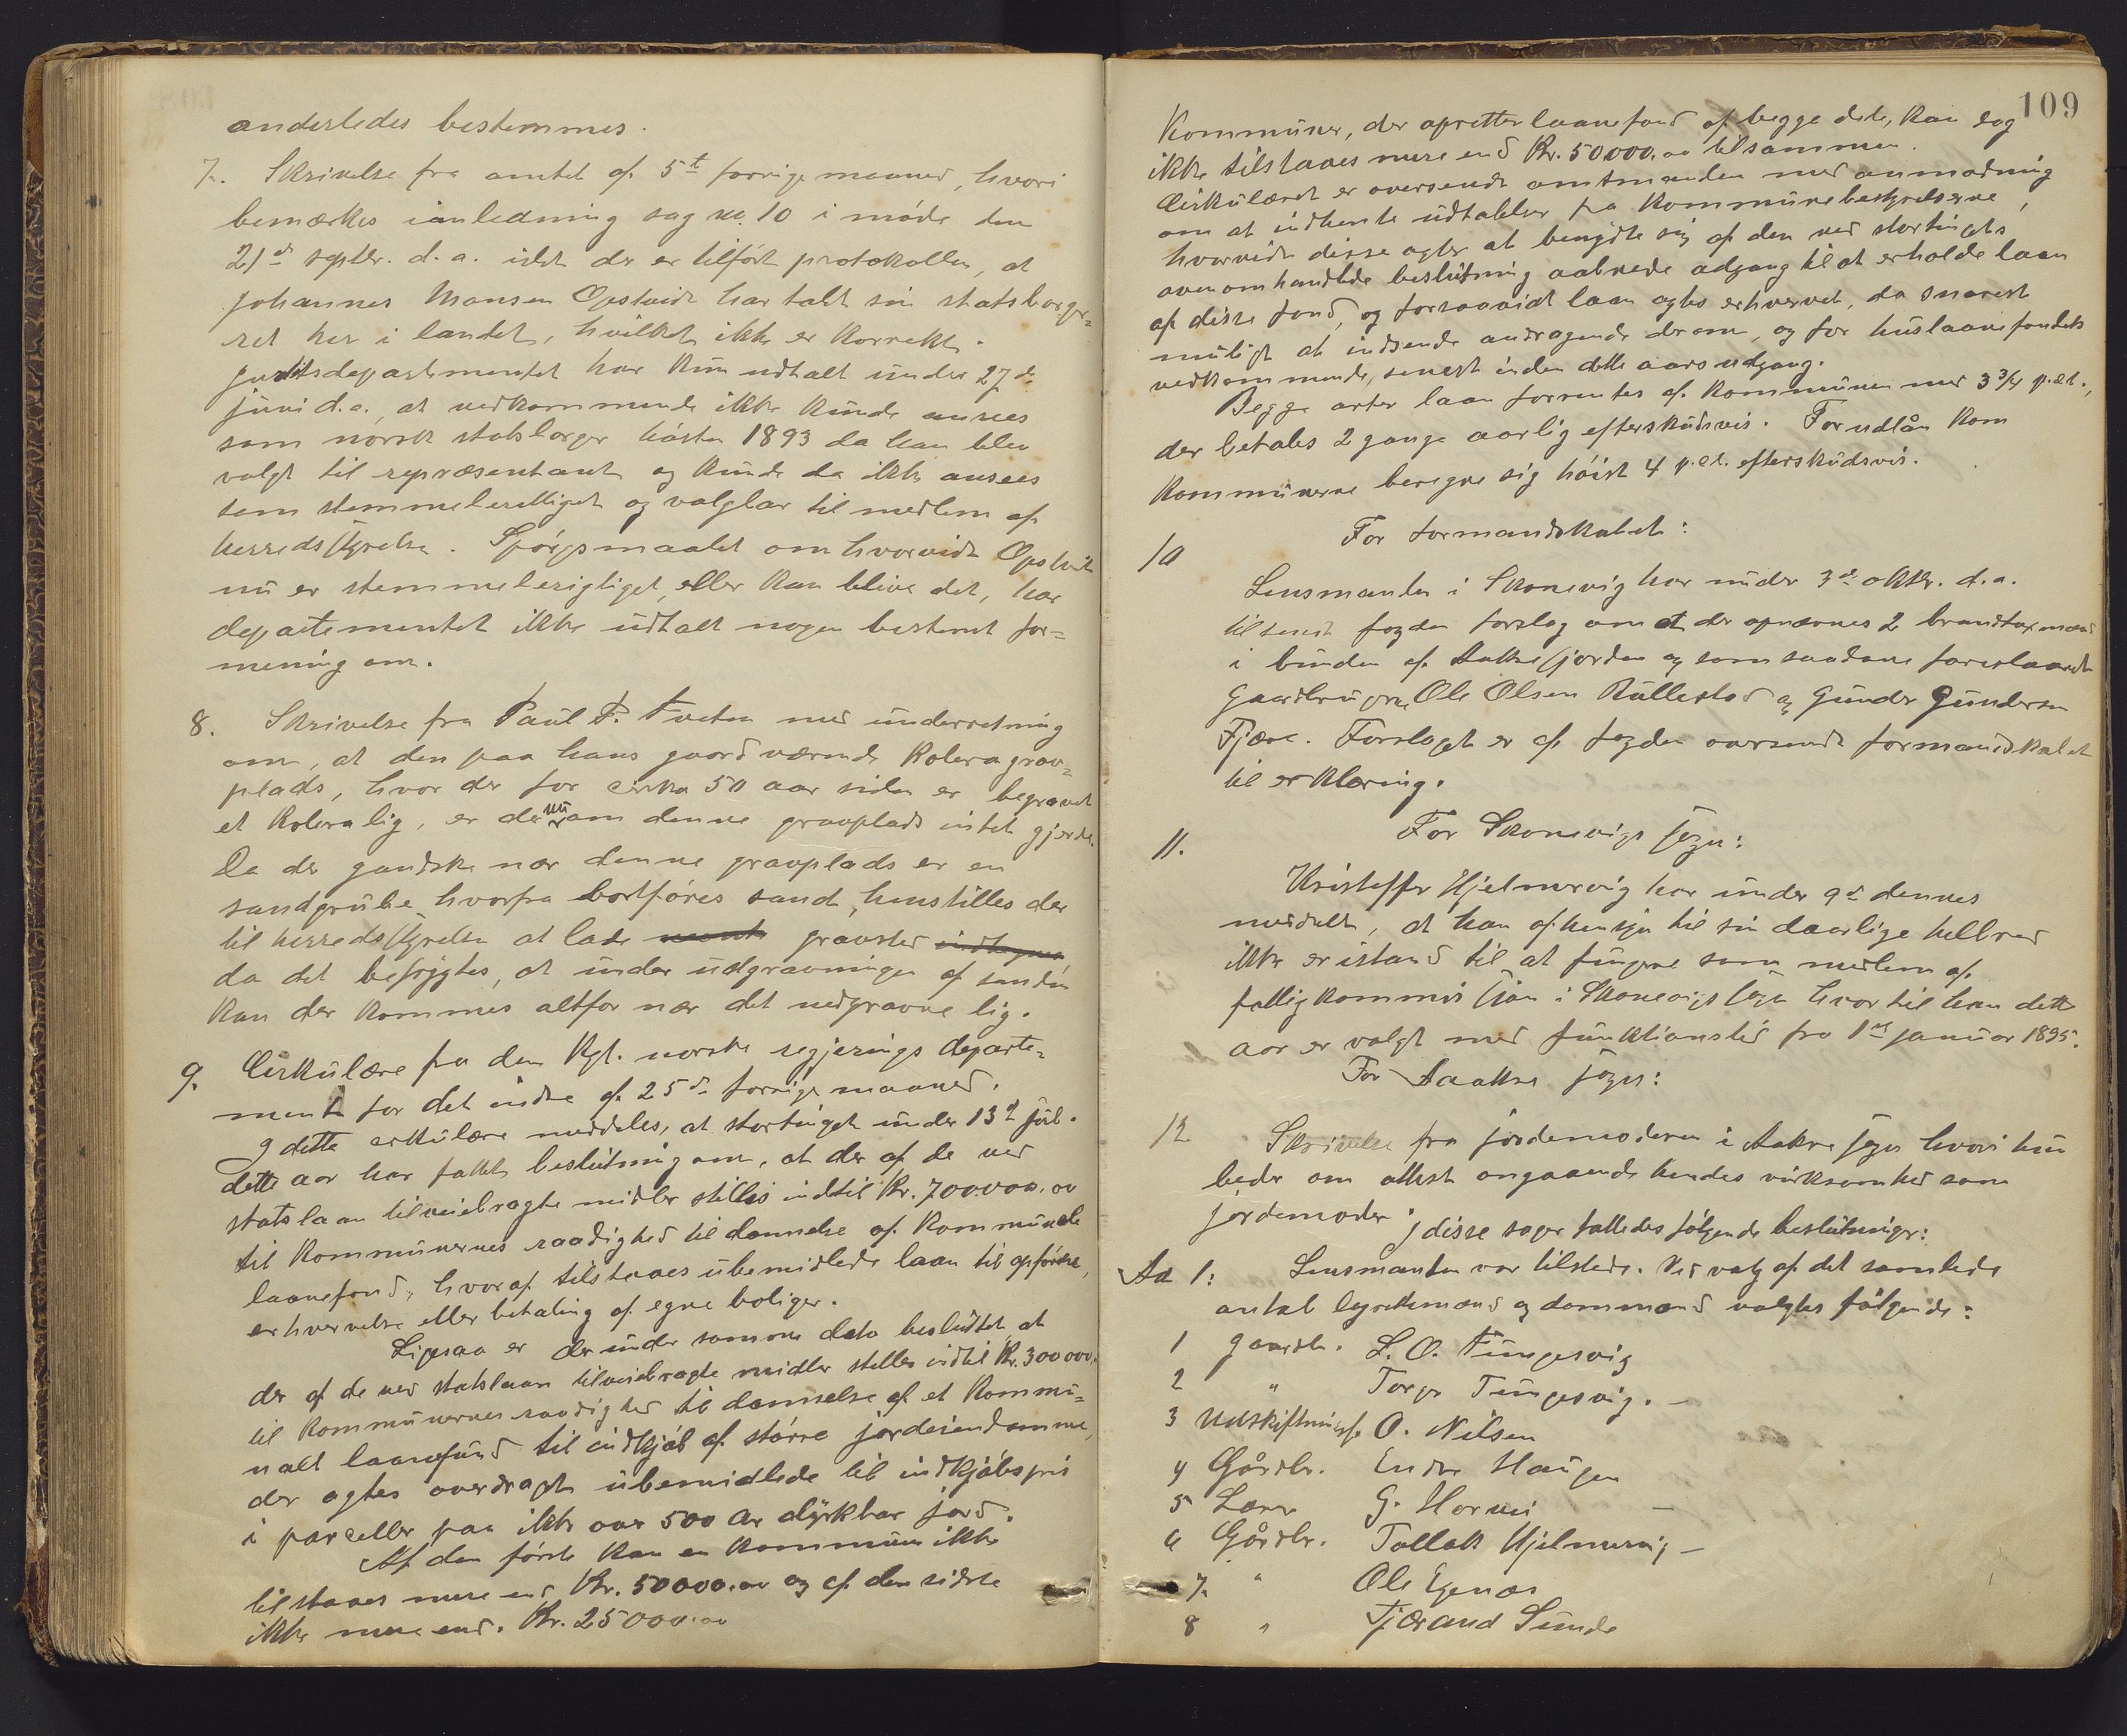 anderledes bestemmes.
7. Skrivelse fra amtet af 5te forrige maaned, hvori
bemærkes ianledning sag no. 10 i møde den
21de septbr. d. a. idet der er tilført protokollen, at
Johannes Monsen Opstveit har tabt sin statsborger=
ret her i landet, hvilket ikke er korrekt.
Justitsdepartementet har kun udtalt under 27de
juni d. a., at vedkommende ikke kunde ansees
som norsk statsborger høsten 1893 da han blev
valgt til repræsentant og kunde da ikke ansees
som stemmeberettiget og valgbar til medlem af
herredsstyrelsen. Spørgsmaalet om hvorvidt Opstveit
nu er stemmeberigtiget, eller kan blive det, har
departementet ikke udtalt nogen bestemt for=
mening om.
8. Skrivelse fra Paul P. Tveten med underretning
om, at den paa hans gaard værende koleragrav=
plads, hvor der for cirka 50 aar siden er begravet
et koleralig, er der nu om denne gravplads intet gjerde.
Da der gandske nær denne gravplads er en
sandgrube hvorfra bortføres sand, henstilles der
til herredsstyrelsen at lade gravsted
da det befrygtes, at under udgravningen af sanden
kan der kommes altfor nær det nedgravne lig.
9. Cirkulære fra den Kgl. norske regjerings departe=
ment for det indre af 25de forrige maaned.
I dette cirkulære meddeles, at stortinget under 13de juli
dette aar har fattet beslutning om, at der af de ved
statslaan tilveiebragte midler stilles indtil Kr. 700.000.00
til kommunernes raadighed til dannelse af kommunale
laanefond, hvoraf tilstaaes ubemidlede laan til opførelse,
erhvervelse eller betaling af egne boliger.
Ligesaa er der under samme dato besluttet at
der af de ved statslaan tilveiebragte midler stilles indtil Kr. 300000.
til kommunernes raadighed til dannelse af et kommu=
nalt laanefond til indkjøb af større jordeiendomme,
der agtes overdraget ubemidlede til indkjøbspris
i parceller paa ikke over 500 Ar dyrkbar jord.
Af den første kan en kommune ikke
tilstaaes mere end Kr. 50000.00 og af den sidste
ikke mere end Kr. 25000.00
109
Kommuner, der opretter laanefond af begge dele, kan dog
ikke tilstaaes mere end Kr. 50000.00 tilsammen.
Cirkulæret er oversendt amtmanden med anmodning
om at indhente udtalelser fra kommunebestyrelserne,
hvorvidt disse agter at benytte sig af den ved stortingets
ovenomhandlede beslutning aabnede adgang til at erholde laan
af disse fond, og forsaavidt laan agtes erhvervet, da snarest
muligt at indsende andragende derom, og for huslaanefondets
vedkommende, senest inden dette aars udgang.
Begge arter laan forrentes af kommunen med 3 3/4 p.ct.,
der betales 2 gange aarlig efterskudsvis. For udlån kom
kommunerne beregne sig høist 4 p.ct. efterskudsvis.
For formandskabet:
10
Lensmanden i Skonevig har under 3de oktbr. d. a.
tilsendt fogden forslag om at der opnævnes 2 brandtaxmænd
i bunden af Aakrefjorden og som saadane foreslaaedt
gaardbrugerne Ole Olsen Rullestad og Gunder Gundersen
Fjære. Forslaget er af fogden oversendt formandskabet
til erklæring.
11. For Skonevigs sogn:
Kristoffer Hjelmervig har under 9de dennes
meddelt, at han af hensyn til sin daarlige helbred
ikke er istand til at fungere som medlem af
fattigkommissjon i Skonevigs sogn hvortil han dette
aar er valgt med funktionstid fra 1ste januar 1895.
For Aakre sogn:
12 Skrivelse fra jordemoderen i Aakre sogn hvori hun
beder om attest angaaende hendes virksomhed som
jordemoder.
I disse sager fattedes følgende beslutninger:
Ad 1: Lensmanden var tilstede. Ved valg af det samlede
antal lagrettemænd og dommænd valgtes følgende:
1 gaardbr. L. O. Tungesvig
2 " Torger Tungesvig. —
3 Udskiftningsf. O. Nilsen
4 Gårdbr. Endre Haugen
5 Lærer G. Hornei —
6 Gårdbr. Tollak Hjelmervig —
7. " Ole Egenæs
8 " Tjærand Sunde